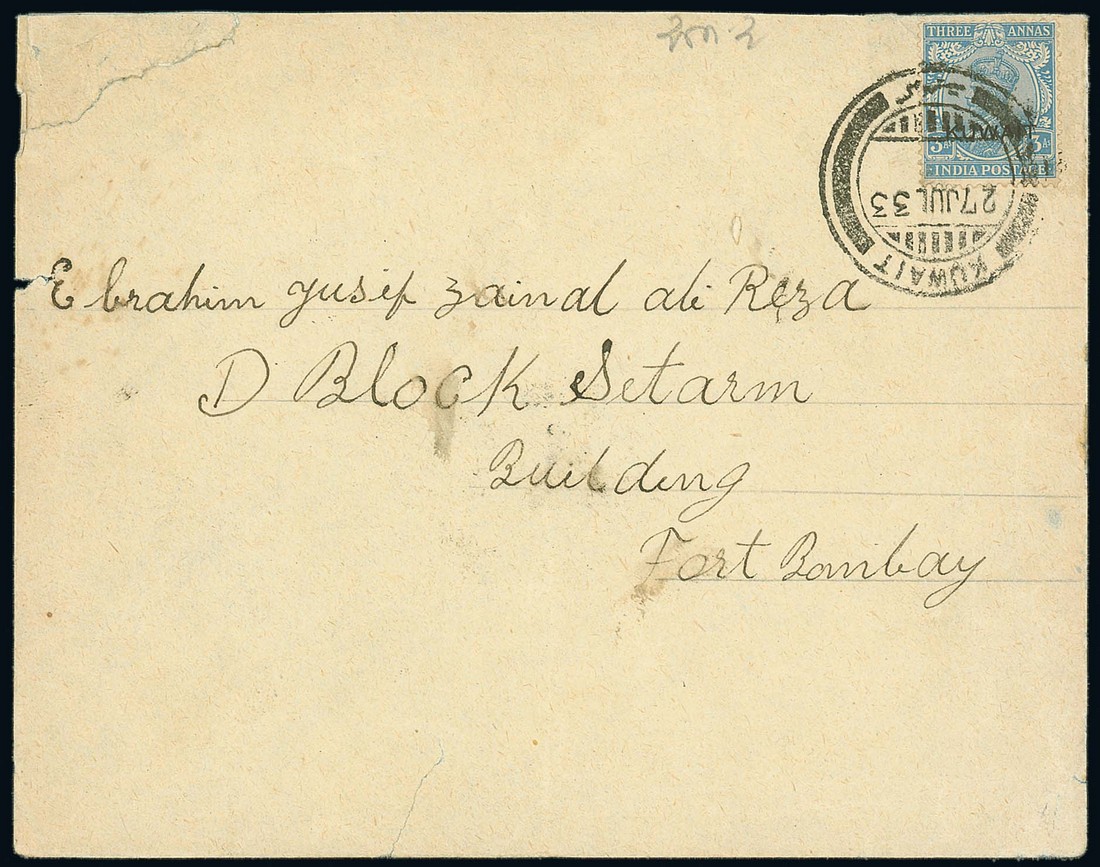 THREE ANNAS
KUWAIT
3A. 3A.
INDIA POSTAGE
27 JUL 33
KUWAIT
Ebrahim yusif zainal ali Reza
D Block Setarm
Building
Fort Bombay